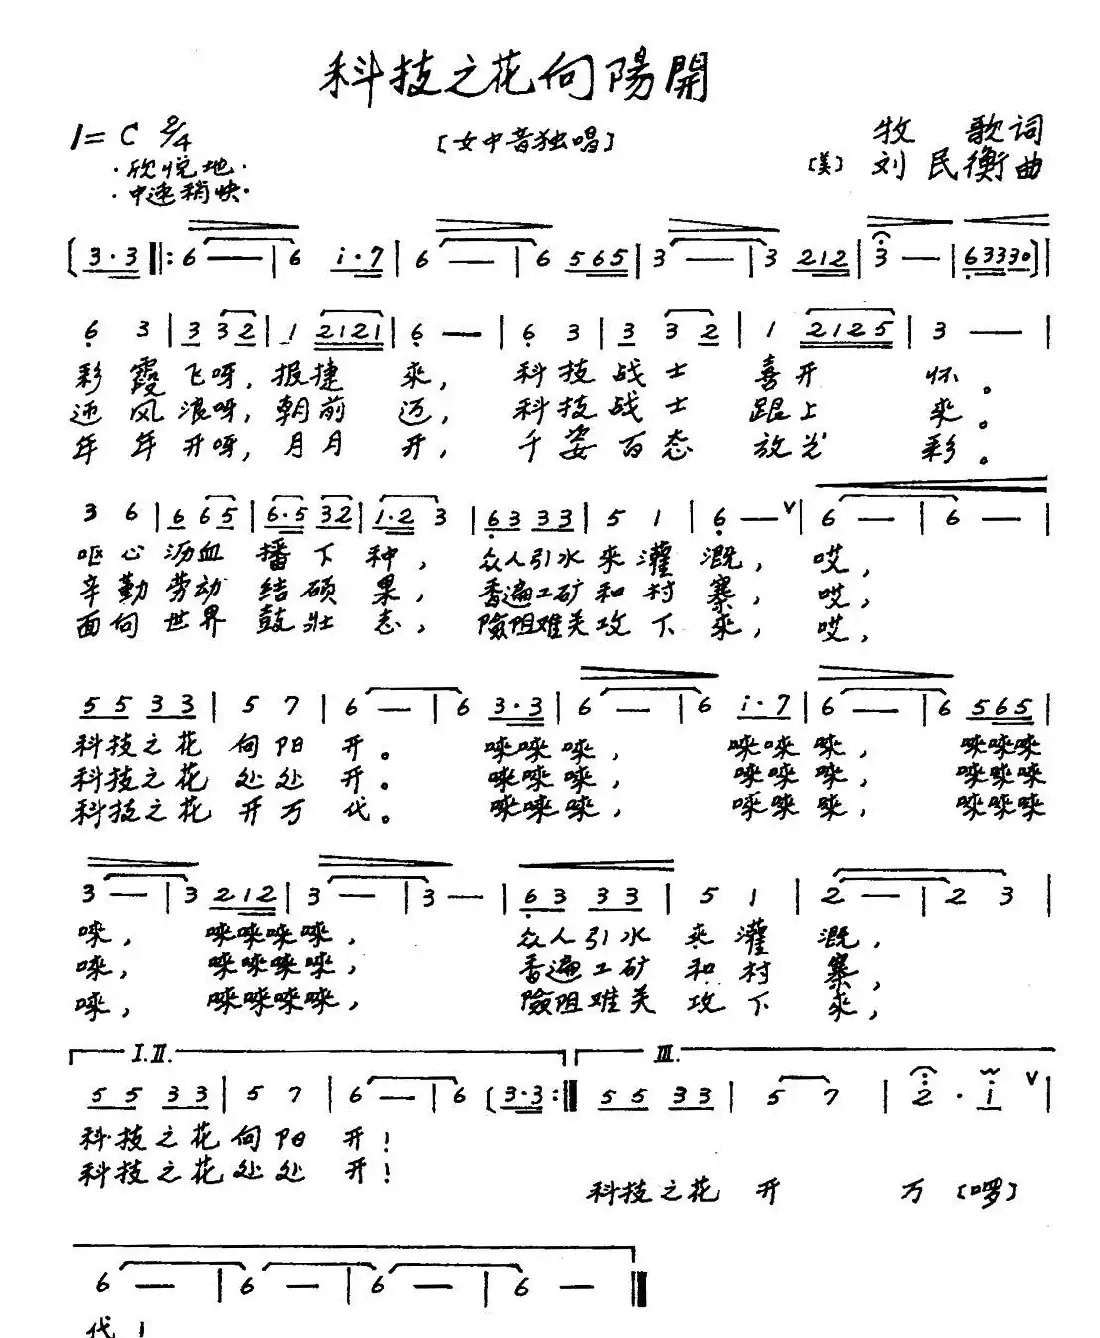 科技之花向陽開
1= C 2/4
〔女中音独唱〕
牧 歌词
·欣悦地·
〔美〕 刘民衡曲
·中速稍快·
〔3·3‖:6 — | 6 i·7 | 6 — | 6 565 | 3 — | 3 212 | 3 — | 63330〕|
6 3 | 3 32 | 1 2121 | 6 — | 6 3 | 3 3 2 | 1 2125 | 3 — |
彩霞飞呀,报捷来,科技战士喜开怀。
迎风浪呀,朝前迈,科技战士跟上来。
年年开呀,月月开,千姿百态放光彩。
3 6 | 6 65 | 6·5 32 | 1·2 3 | 63 33 | 5 1 | 6 — V | 6 — | 6 — |
呕心沥血播下种,众人引水来灌溉,哎,
辛勤劳动结硕果,香遍工矿和村寨,哎,
面向世界鼓壮志,險阻难关攻下来,哎,
55 33 | 5 7 | 6 — | 6 3·3 | 6 — | 6 i·7 | 6 — | 6 565 |
科技之花向阳开。唻唻唻,唻唻唻,唻唻唻
科技之花处处开。唻唻唻,唻唻唻,唻唻唻
科技之花开万代。唻唻唻,唻唻唻,唻唻唻
3 — | 3 212 | 3 — | 3 — | 63 33 | 5 1 | 2 — | 2 3 |
唻,唻唻唻唻,众人引水来灌溉,
唻,唻唻唻唻,香遍工矿和村寨,
唻,唻唻唻唻,險阻难关攻下来,
I.II. III.
55 33 | 5 7 | 6 — | 6 〔3·3 :‖ 55 33 | 5 7 | 2 · i V |
科技之花向阳开!
科技之花处处开!
科技之花开 万〔啰〕
6 — | 6 — | 6 — | 6 — ‖
代!